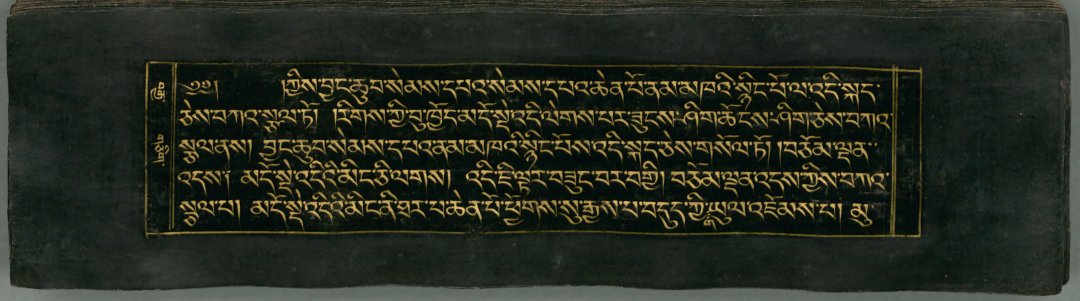 ༄༅། །ཀྱིས་བྱང་ཆུབ་སེམས་དཔའ་སེམས་དཔའ་ཆེན་པོ་ནམ་མཁའི་སྙིང་པོ་ལ་འདི་སྐད་
ཅེས་བཀའ་སྩལ་ཏོ། །རིགས་ཀྱི་བུ་ཁྱོད་མདོ་སྡེ་འདི་ལེགས་པར་ཟུངས་ཤིག་ཆོངས་ཤིག་ཅེས་བཀའ་
སྩལ་ནས། བྱང་ཆུབ་སེམས་དཔའ་ནམ་མཁའི་སྙིང་པོས་འདི་སྐད་ཅེས་གསོལ་ཏོ། །བཅོམ་ལྡན་
འདས། མདོ་སྡེ་འདིའི་མིང་ཅི་ལགས། འདི་ཇི་ལྟར་བཟུང་བར་བགྱི། བཅོམ་ལྡན་འདས་ཀྱིས་བཀའ་
སྩལ་པ། མདོ་སྡེ་འདིའི་མིང་ནི་ཐར་པ་ཆེན་པོ་ཕྱོགས་སུ་རྒྱས་པ་བདུད་ཀྱི་གཡུལ་འཇོམས་པ། མུ
གཅིག